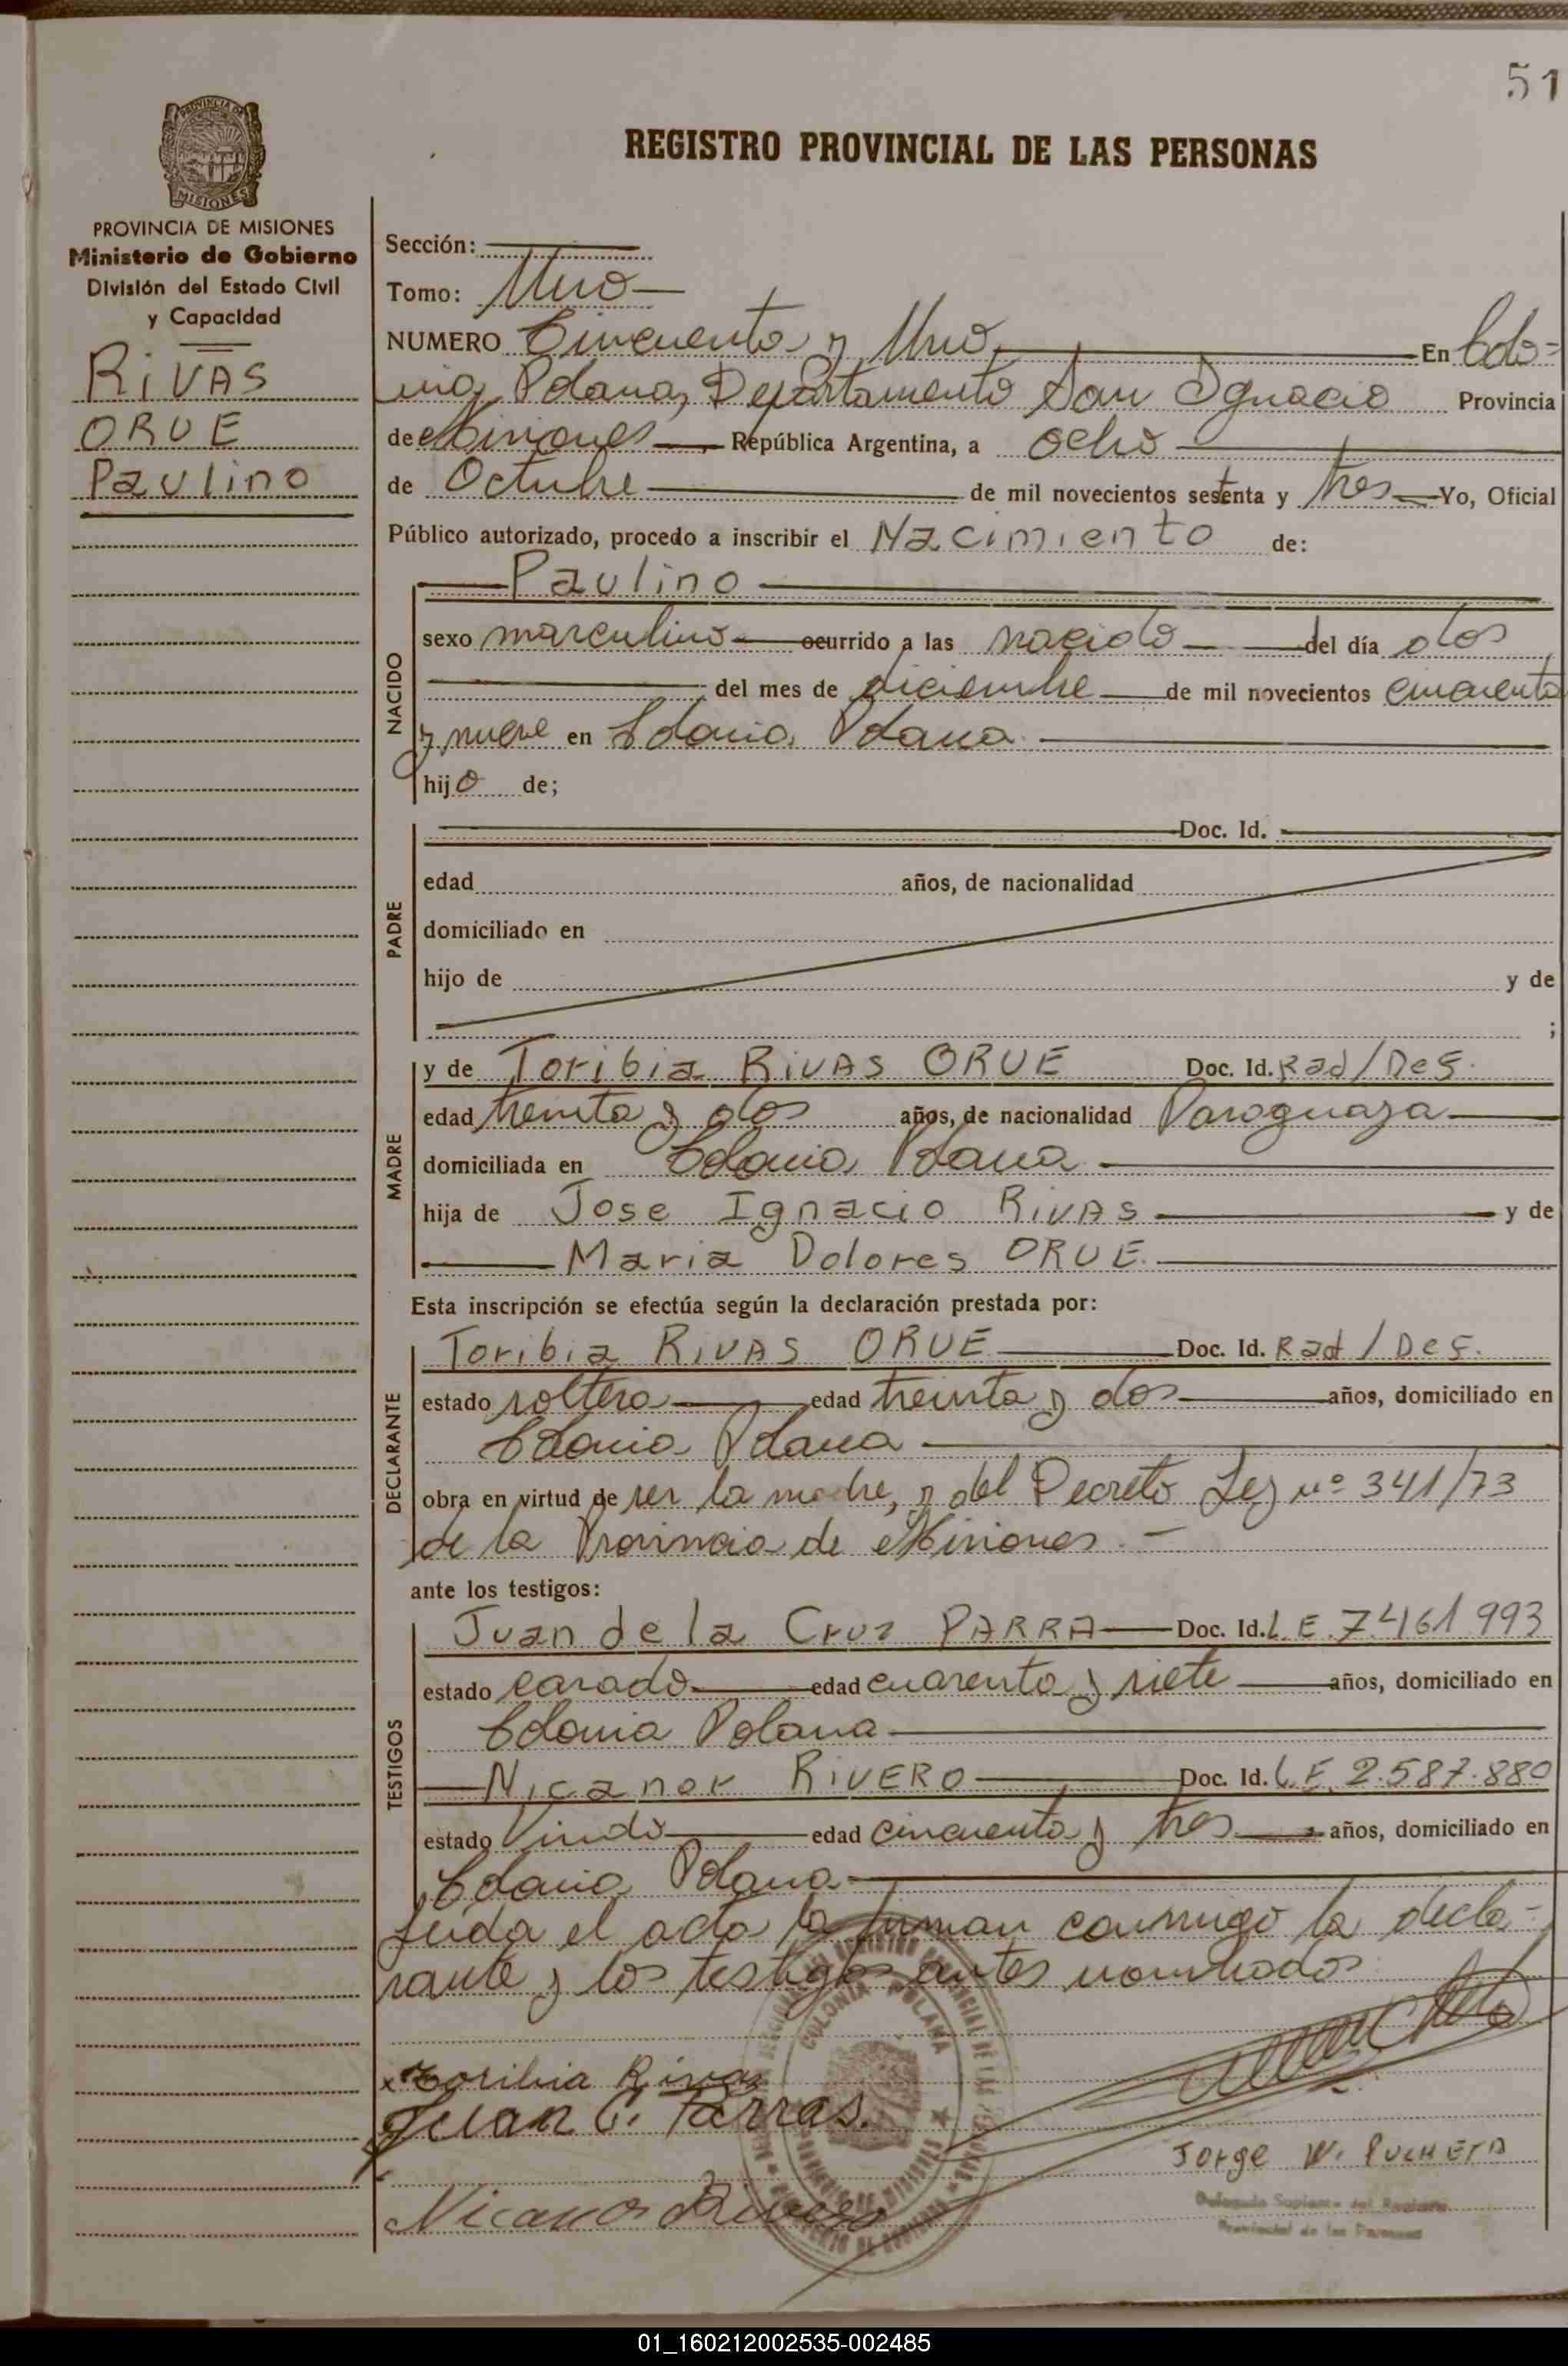 51
PROVINCIA DE
MISIONES
REGISTRO PROVINCIAL DE LAS PERSONAS
PROVINCIA DE MISIONES
Ministerio de Gobierno
División del Estado Civil
y Capacidad
RIVAS
ORUE
Paulino
Sección:
Tomo: Uno
NUMERO Cincuenta y Uno, En Colo-
nia Polana, Departamento San Ignacio Provincia
de Misiones República Argentina, a ocho
de Octubre de mil novecientos setenta y tres Yo, Oficial
Público autorizado, procedo a inscribir el Nacimiento de:
Paulino
NACIDO
sexo masculino ocurrido a las nacido del día dos
del mes de diciembre de mil novecientos cincuenta
y nueve en Colonia Polana
hijo de;
PADRE
Doc. Id.
edad años, de nacionalidad
domiciliado en
hijo de y de
;
MADRE
y de Toribia RIVAS ORUE Doc. Id. Rad/Des.
edad treinta y dos años, de nacionalidad Paraguaya
domiciliada en Colonia Polana
hija de Jose Ignacio RIVAS y de
Maria Dolores ORUE.
Esta inscripción se efectúa según la declaración prestada por:
DECLARANTE
Toribia RIVAS ORUE Doc. Id. Rad/Des.
estado soltera edad treinta y dos años, domiciliado en
Colonia Polana
obra en virtud de ser la madre, y del Decreto Ley nº 341/73
de la Provincia de Misiones. -
ante los testigos:
TESTIGOS
Juan de la Cruz PARRA Doc. Id. L.E. 7.461 993
estado casado edad cuarenta y siete años, domiciliado en
Colonia Polana
Nicanor RIVERO Doc. Id. L.E. 2.587.880
estado Viudo edad cincuenta y tres años, domiciliado en
Colonia Polana
Leida el acta la firman conmigo la decla-
rante y los testigos antes nombrados
COLONIA POLANA
x Toribia Rivas
Juan C. Parras.
Nicanor Rivero
Jorge W. PUCHETA
Delegado Suplente del Registro
Provincial de las Personas
01_160212002535-002485